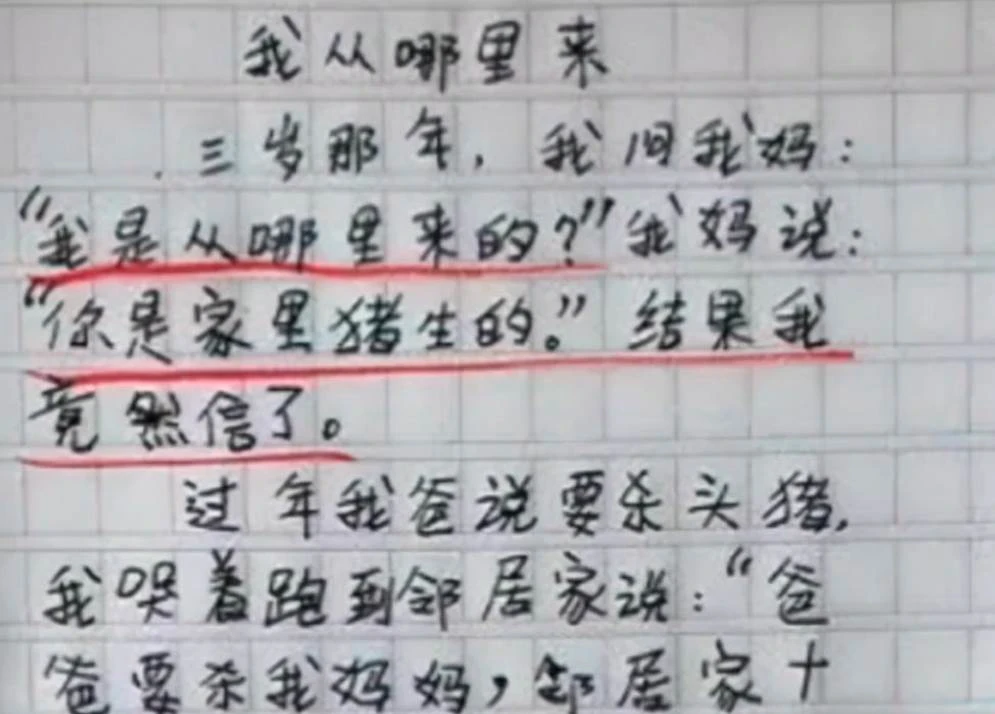 我从哪里来
三岁那年，我问我妈：
“我是从哪里来的？”我妈说：
“你是家里猪生的。”结果我
竟然信了。
过年我爸说要杀头猪，
我哭着跑到邻居家说：“爸
爸要杀我妈妈，邻居家十